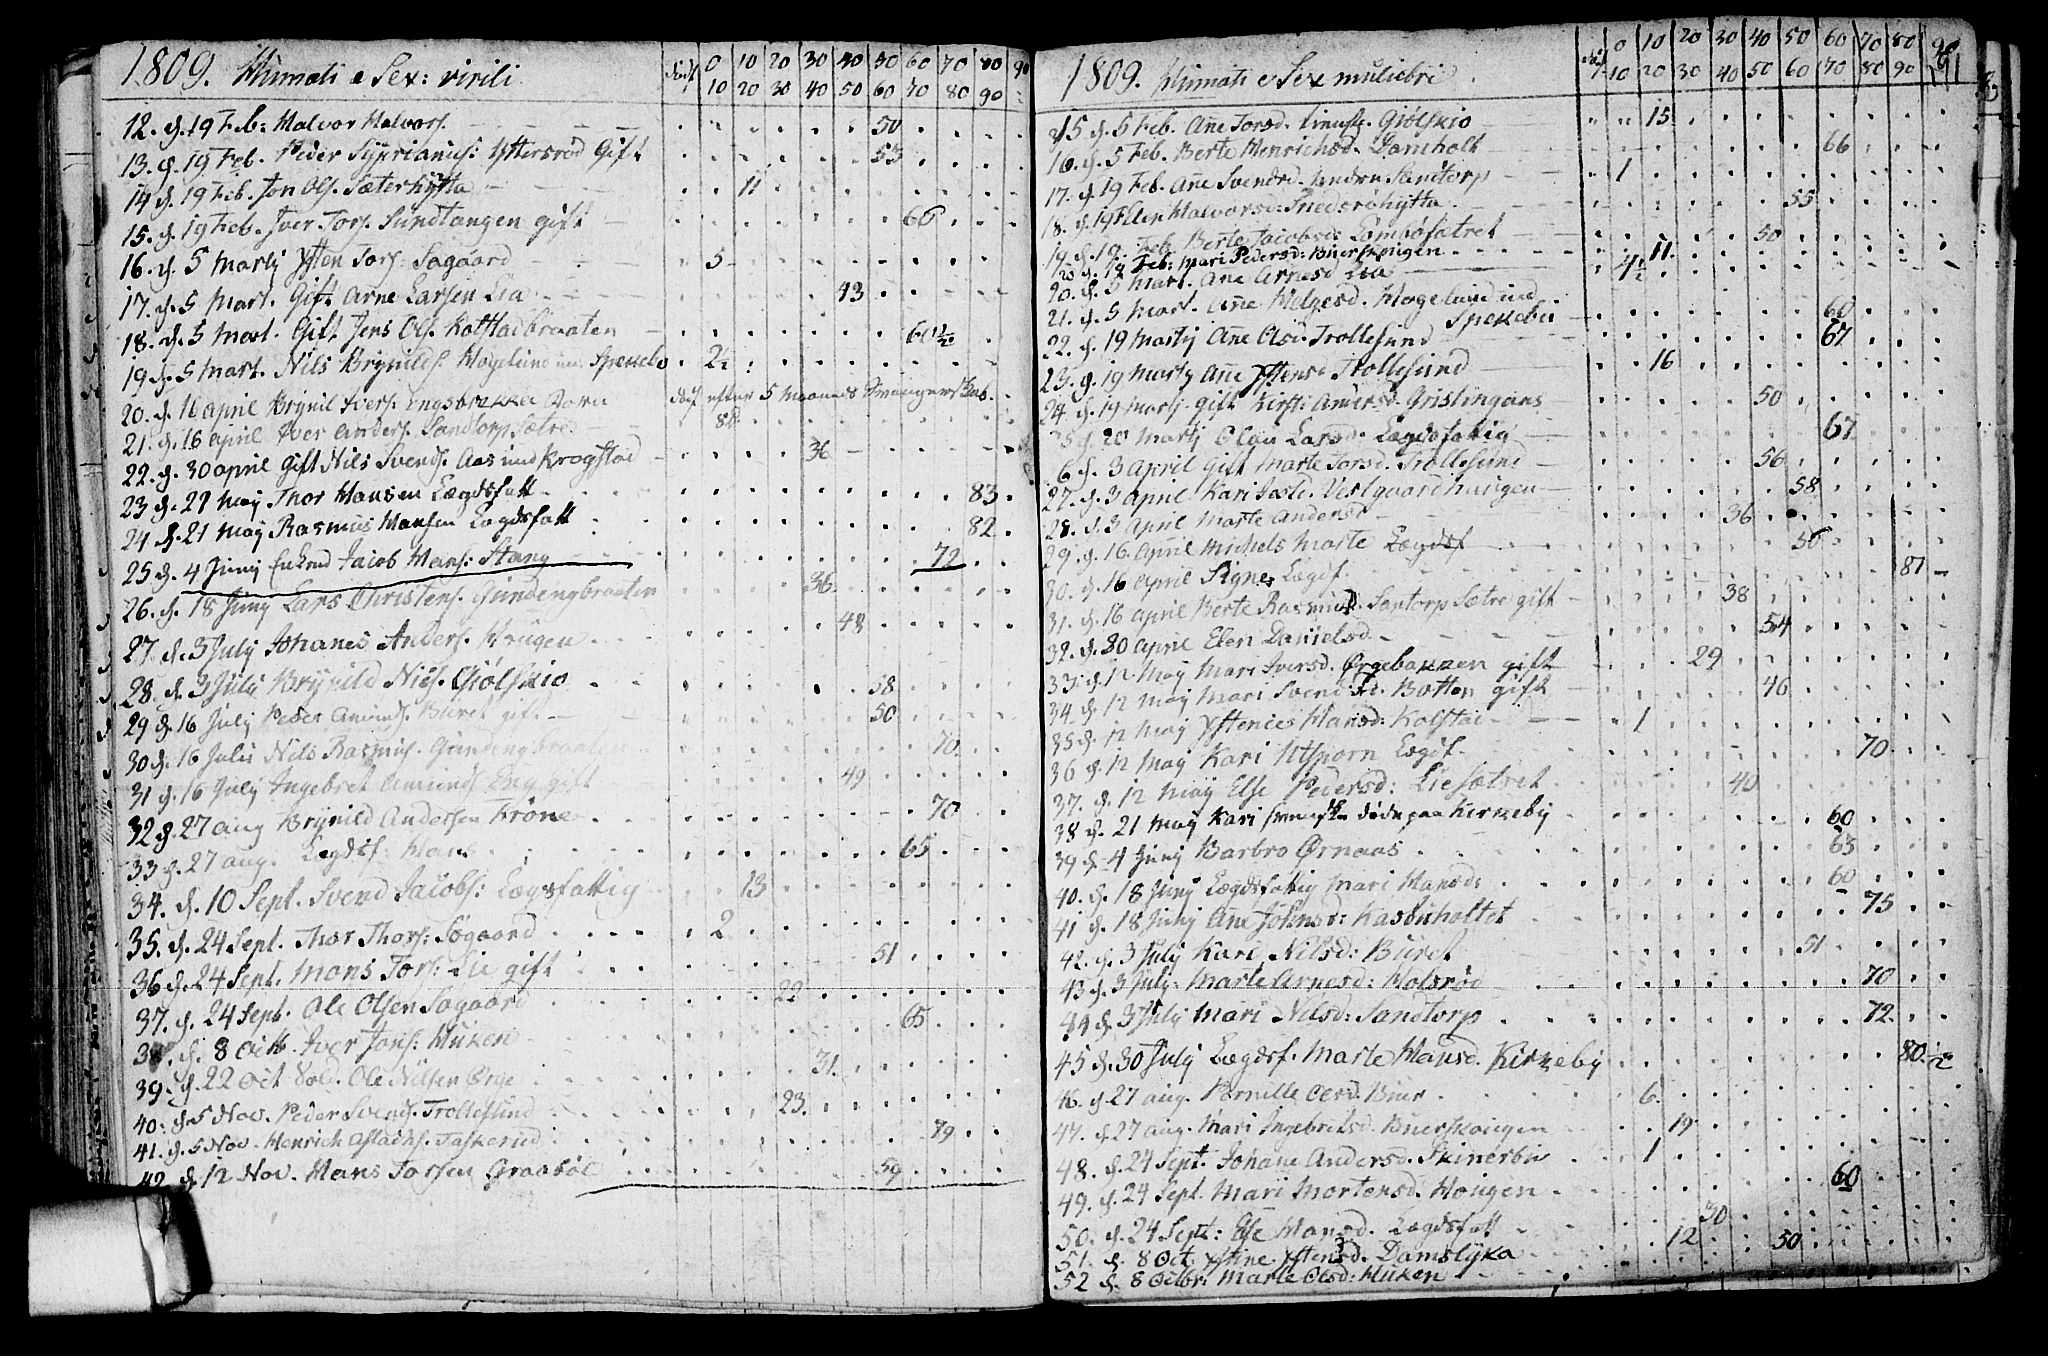 1809. Humati e Sex: virili
0 10 20 30 40 50 60 70 80 90
10 20 30 40 50 60 70 80 90
12. d. 19 Feb: Halvor Halvors. 50
13. d. 19 Feb. Peder Syprianus: Yttersrød Gift 53
14 d. 19 Feb. Jon Ols. Sæterhytta 11
15. d. 19 Feb. Iver Tors. Sundtangen gift 66
16. d. 5 Martij Ysten Tors: Sogaard 5
17. d. 5 Mart. Gift Arne Larsen Lia 43
18. d. 5 Mart. Gift Jens Ols. Kolstadbraaten 60 1/2
19 d. 5 Mart. Nils Brynilds. Hogelund Spekebo 2 1/2
20. d. 16 april Brynil Ivers. Engsbrekke efter 5 Maaneds Svangerskab.
21. d. 16 april Iver Anders. Sandtorp Sætre 8
22. d. 30 april Gift Nils Svends. Aas Krogstad 36
23 d. 21 May Thor Hansen Lægdsfatt. 83
24 d. 21 May Rasmus Hansen Lægdsfatt 82
25 d. 4 Juny Enkmd Jacob Hans: Stang 72
26. d. 18 Juny Lars Christens. Gundengbraaten 36
27. d. 3 July Johanes Anders. Krugen 48
28. d. 3 July Brynild Niels. Giølskio 58
29 d. 16 July Peder Amunds. Buret gift 50
30 d. 16 Julii Nils Rasmus. Gundengbraaten 70
31 d. 16 July Ingebret Amunds. Eng gift 49
32 d. 27 aug Brynild Andersen Krönen 70
33 d. 27 aug. Lægdsf. Hans 65
34. d. 10 Sept. Svend Jacobs: Lægsfattig 13
35. d. 24 Sept. Thor Thors: Søgaard 2
36 d. 24 Sept. Mons Tors: Lie gift 51
37. d. 24 Sept. Ole Olsen Sogaard 22
38. d. 8 Octb. Iver Jons: Huken 65
39. d. 22 Oct Sold. Ole Nilsen Ørge 31
40. d. 5 Nov. Peder Svends. Trollesund 23
41. d. 5 Nov. Henrich Aslachs. Taskerud 79
42. d. 12 Nov. Hans Torsen Graabøl 59
1809. Humati e Sex muliebri
0 10 20 30 40 50 60 70 80 90
10 20 30 40 50 60 70 80 90
15 d. 5 Feb. Ane Torsd. Giølskio 15
16. d. 5 Feb. Berte Henrichsd. Damholt 66
17. d 19 Feb. Ane Svendsd. Sandtorp 1
18. d. 19 Feb Halvorsd. Snedsrøhytta 55
19 d. 19. Feb Berte Jacobsd: Lombøsætret 50
20. d. 19 Feb: Mari Pedersd: Buerskougen 11
20. d. 5 Mart. Ane Arnesd Lia 4 1/2
21. d. 5 Mart. Ane Helgesd. Hogelund
Spekebu 60
22. d. 19 Martij Ane Olsd. Trollesund 67
23. d. 19 Martij Ane Ystensd Trollesund 16
24. d. 19 Martij. Gift Kirsti Andersd. Gristingaas 50
25 d. 20 Martij Olau Larsd. Lægdsfattig 67
6 d. 3 April Gift Marte Torsd. Trollesund 56
27. d. 3 april Kari Vestgaardhaugen 58
28. d. 3 April Marte Andersd 36
29. d. 16 april Michels Marte Lægdsf 56
30. d. 16 april Signe Lægdsf. 87
31. d. 16 april Berte Rasmusd. Santorp Sætre gift 38
32. d. 30 april Elen Danielsd. 54
33. d. 12 May Mari Iversd. Ørgebakken gift 29
34. d. 12 May Mari Svendsd. Botten gift 46
35 d. 12 May Hansd: Kolstad 1
36 d. 12 May Kari Utsporn Lægdsf. 70
37. d. 12 May Else Pedersd: Lie Sætret 40
38 d. 21 May Kari svenske døde paa Kirkeby 60
39 d. 4 Juny Barbro Ørnaas 63
40. d. 18 Juny Lægdsfattig Mari Hansd: 60
41 d. 18 Juny Ane Johnsd: Kasbuholtet 75
42. d. 3 July Kari Nilsd: Buret 51
43 d. 3 July: Marte Arnesd: Holsrød 70
44 d. 3 July Mari Nilsd: Sandtorp 72
45 d. 30 July Lægdsf. Marte Hansd. Kirkeby 80
46. d. 27 aug. Pernille Olesd. Buer 6
47. d. 27 aug. Mari Ingebretsd. Buerskougen 19
48. d. 24 Sept. Johane Andersd. Skinerbu 1
49. d. 24 Sept. Mari Mortensd. Hougen 60
50. d. 24 Sept: Else Hansd. Lægdsfatt 30
51. d. 8 Oct. Ystensd. Damslyka 12
52 d. 8 Octbr: Marte Olsd: Huken 50